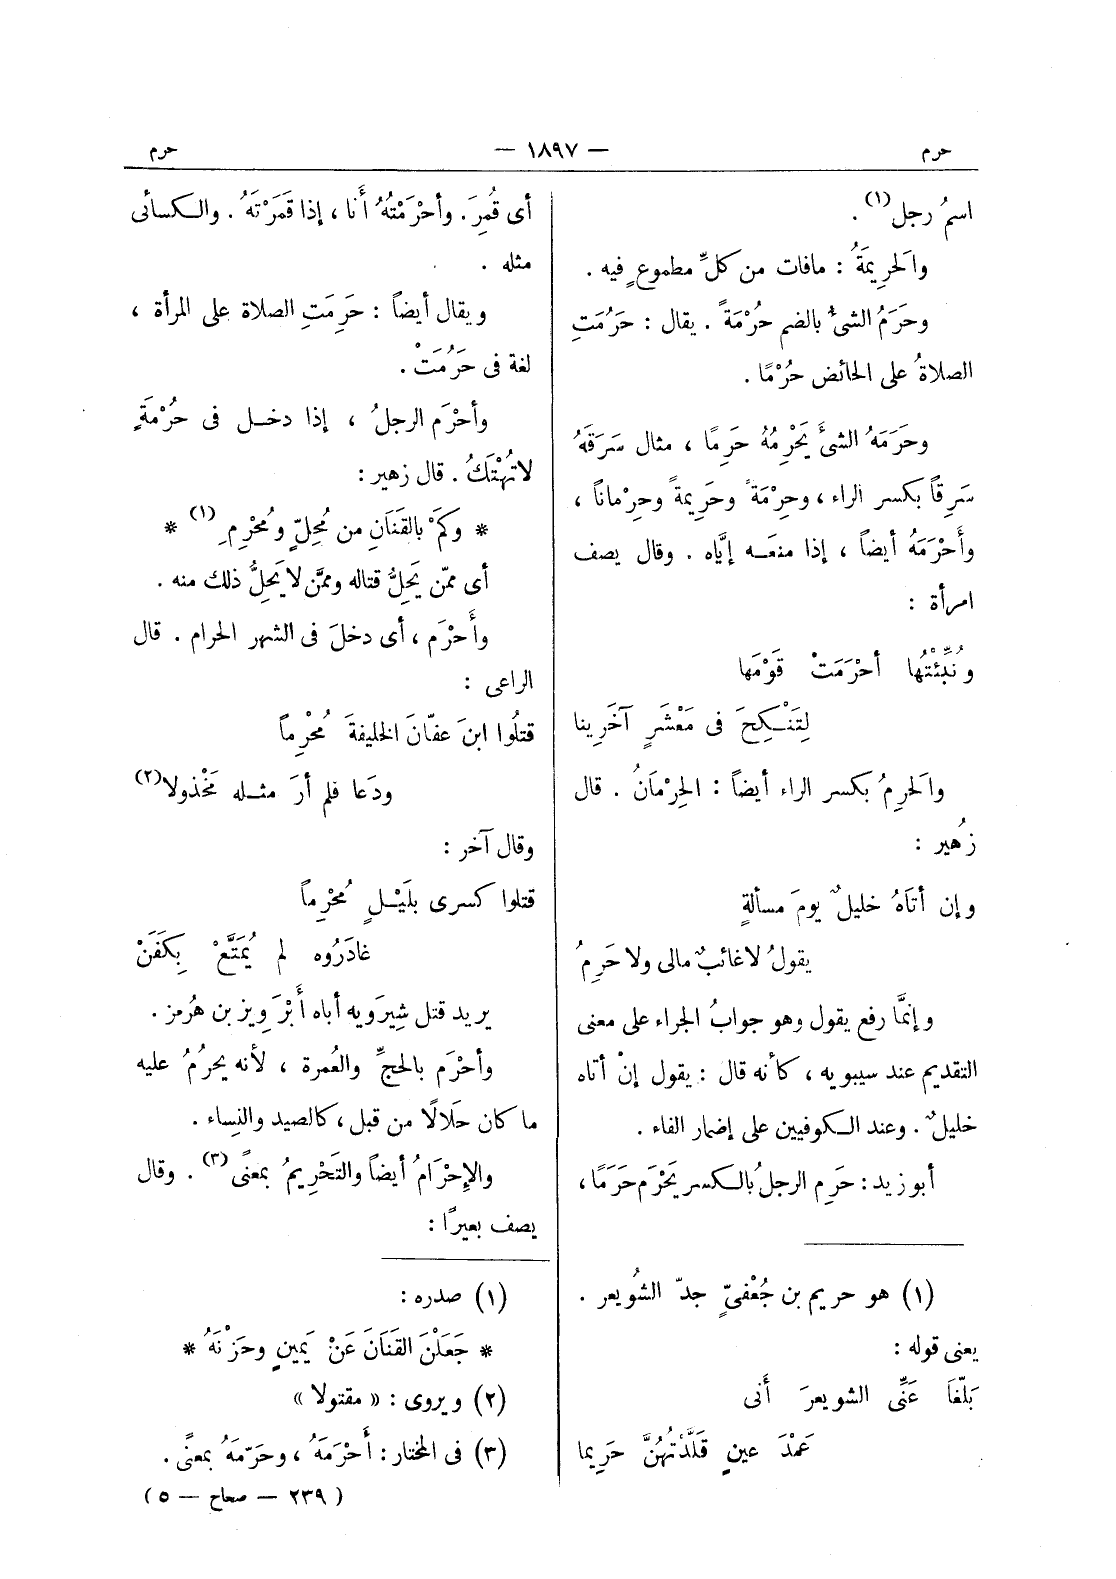 حرم
— ١٨٩٧ —
حرم
اسمُ رجل(١) .
والحَرِيمَةُ : مافات من كلِّ مطموعٍ فيه .
وحَرُمَ الشئُ بالضم حُرْمَةً . يقال : حَرُمَتِ
الصلاةُ على الحائض حُرْمًا .
وحَرَمَهُ الشئَ يَحْرِمُهُ حَرِمًا ، مثال سَرَقَهُ
سَرِقاً بكسر الراء ، وحِرْمَةً وحَرِيمةً وحِرْماناً ،
وأَحْرَمَهُ أيضاً ، إذا منعَــه إيَّاه . وقال يصف
امرأة :
ونُبِّئْتُها أحْرَمَتْ قَوْمَها
لِتَنْـكِحَ فى مَعْشَرٍ آخَرِينا
والحَرِمُ بكسر الراء أيضاً : الحِرْمَانُ . قال
زُهير :
وإن أتَاهُ خليلٌ يومَ مسألةٍ
يقولُ لاغائبٌ مالى ولا حَرِمُ
وإنمَّا رفع يقول وهو جوابُ الجزاء على معنى
التقديم عند سيبويه ، كأنه قال : يقول إنْ أتاه
خليلٌ . وعند الـكوفيين على إضمار الفاء .
أبو زيد : حَرِم الرجلُ بالـكسر يَحْرَم حَرَمًا ،
(١) هو حريم بن جُعْفىٍّ جدّ الشُويعر .
يعنى قوله :
بَلّغاَ عَنِّى الشويعرَ أَنى
عَمْدَ عينٍ قَلَّدْتُهُنَّ حَرِيما
أى قُمِرَ . وأحْرَمْتُهُ أَنا ، إذا قَمَرْتَهُ . والـكسائى
مثله .
ويقال أيضاً : حَرِمَتِ الصلاة على المرأة ،
لغة فى حَرُمَتْ .
وأحْرَم الرجلُ ، إذا دخـل فى حُرْمَةٍ
لاتُهْتَكُ . قال زهير :
* وكمَْ بالقَنَانِ من مُحِلٍّ ومُحْرِمِ(١) *
أى ممّن يَحِلُّ قتاله وممَّن لا يَحِلُّ ذلك منه .
وأَحْرَم ، أى دخلَ فى الشهر الحرام . قال
الراعى :
قتلُوا ابنَ عفّانَ الخليفةَ مُحْرِماً
ودَعا فلم أرَ مثـله مَخْذولا(٢)
وقال آخر :
قتلوا كسرى بلَيْـلٍ مُحْرِماً
غادَرُوه لم يُمَتَّعْ بِكَفَنْ
يريد قتل شِيرَويه أباه أَبْرَوِيز بن هُرمز .
وأحْرَم بالحجِّ والعُمرة ، لأنه يحرُمُ عليه
ما كان حَلَالًا من قبل ، كالصيد والنِساء .
والإحْرَامُ أيضاً والتَحْرِيمُ بمعنًى(٣) . وقال
يصف بعيرًا :
(١) صدره :
* جَعَلْنَ القَنَانَ عَنْ يَمينٍ وحَزْنَهُ *
(٢) ويروى : « مقتولا »
(٣) فى المختار : أَحْرَمَهُ ، وحَرّمَهُ بمعنًى .
( ٢٣٩ — صحاح — ٥ )